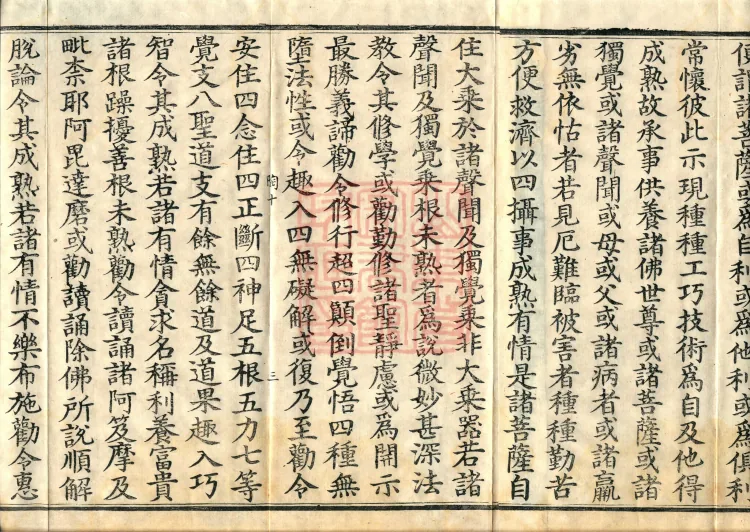 便設諸菩薩或爲自利或爲俱利
常懷彼此示現種種工巧技術爲自及他得
成熟故承事供養諸佛世尊或諸菩薩或諸
獨覺或諸聲聞或母或父或諸病者或諸羸
劣無依怙者若見厄難臨被害者種種勤苦
方便救濟以四攝事成熟有情是諸菩薩自
住大乘於諸聲聞及獨覺乘非大乘器若諸
聲聞及獨覺乘根未熟者爲說微妙甚深法
教令其修學或勸勤修諸聖靜慮或爲開示
最勝義諦勸令修行超四顛倒覺悟四種無
墮法性或令趣入四無礙解或復乃至勸令
陶十
三
安住四念住四正斷四神足五根五力七等
覺支八聖道支有餘無餘道及道果趣入巧
智令其成熟若諸有情貪求名稱利養富貴
諸根躁擾善根未熟勸令讀誦諸阿笈摩及
毗柰耶阿毘達磨或勸讀誦除佛所說順解
脫論令其成熟若諸有情不樂布施勸令惠